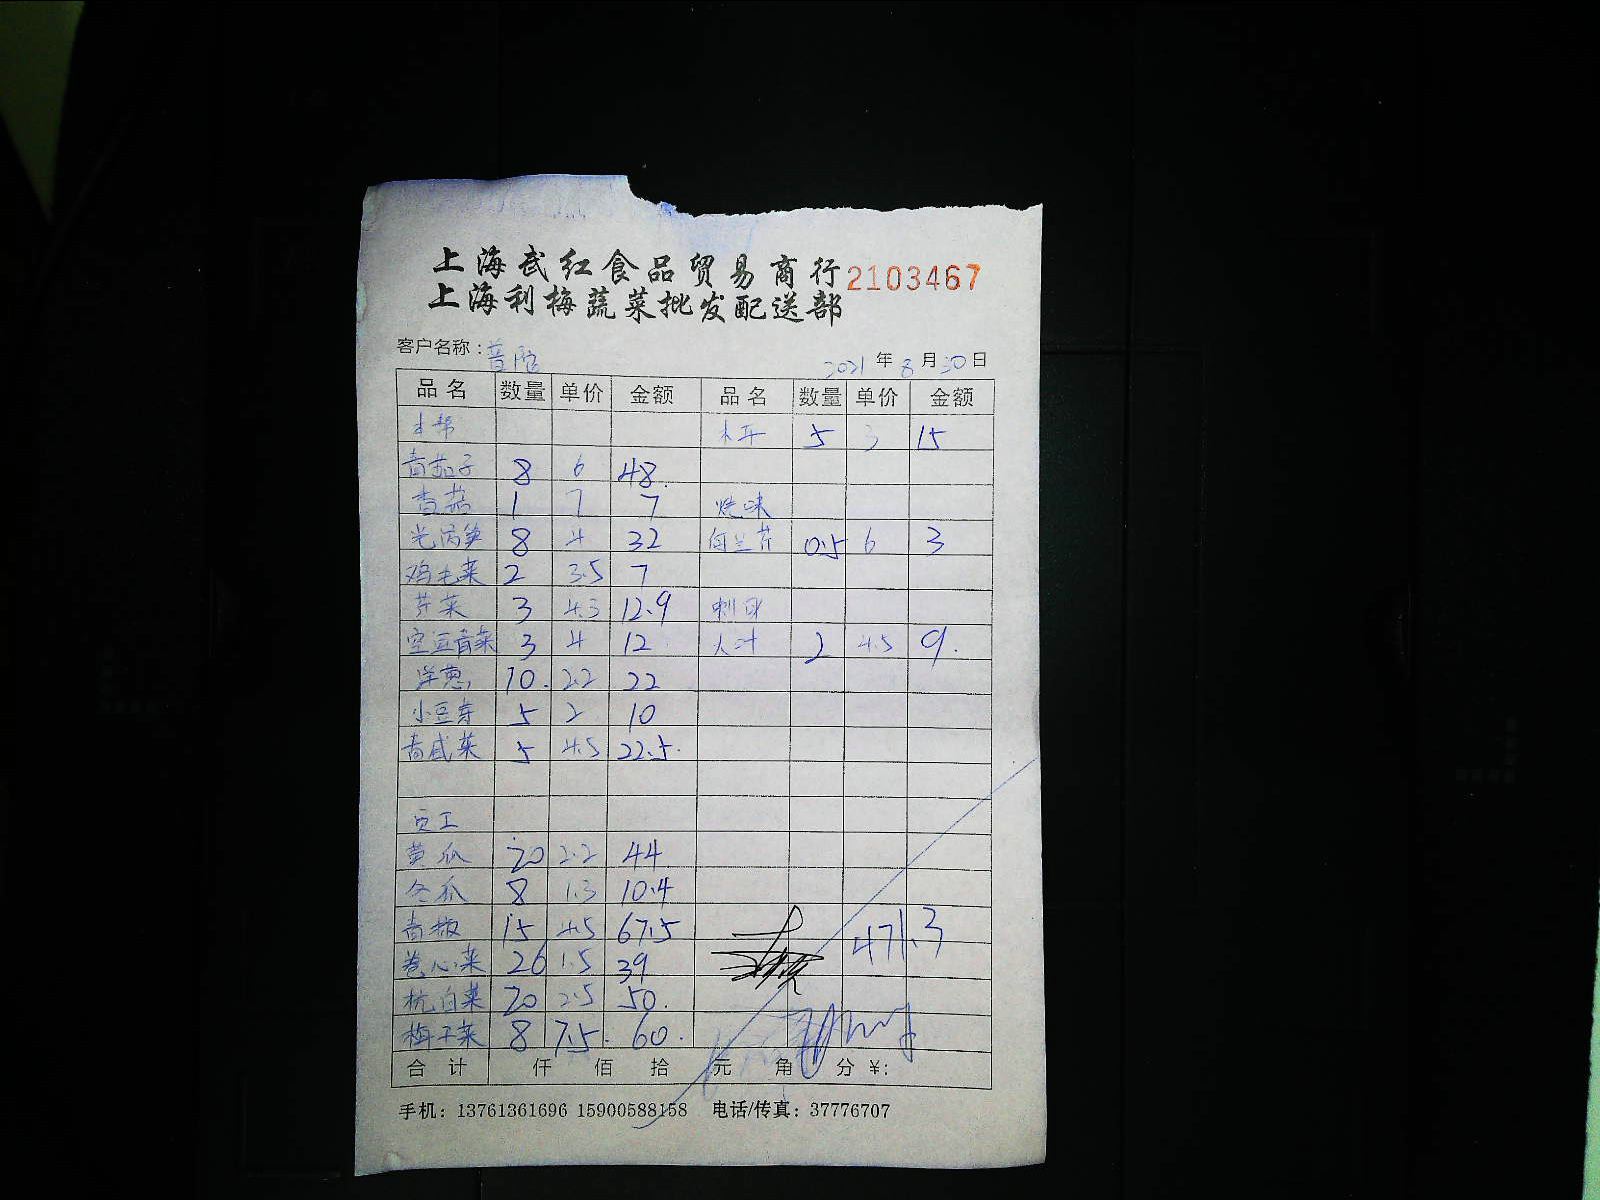 上海武红食品贸易商行 2103467
上海利梅蔬菜批发配送部
客户名称: 2021年8月30日
品名 数量 单价 金额 品名 数量 单价 金额
木耳 5 3 15
青茄子 8 6 48.
香菇 1 7 7 烧味
光莴笋 8 4 32 荷兰芹 0.5 6 3
鸡毛菜 2 3.5 7
芹菜 3 4.3 12.9 刺身
豆苗菜 3 4 12 大叶 2 4.5 9.
洋葱 10. 2.2 22
小豆芽 5 2 10
青咸菜 5 4.5 22.5.
员工
黄瓜 20 2.2 44
冬瓜 8 1.3 10.4
青椒 15 4.5 67.5
卷心菜 26 1.5 39 471.3
杭白菜 20 2.5 50.
梅干菜 8 7.5. 60.
合计 仟 佰 拾 元 角 分 ¥:
手机: 13761361696 15900588158 电话/传真: 37776707